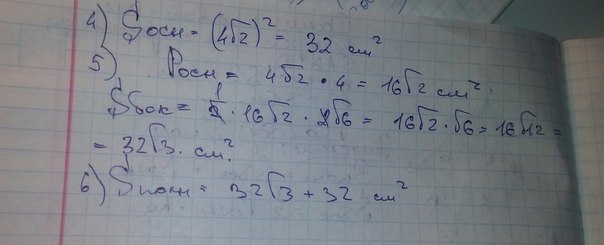 4) Sосн = (4√2)² = 32 см²
5) Росн = 4√2 · 4 = 16√2 см².
Sбок = 1/2 · 16√2 · 2√6 = 16√2 · √6 = 16√12 =
= 32√3 · см².
6) Sполн = 32√3 + 32 см²